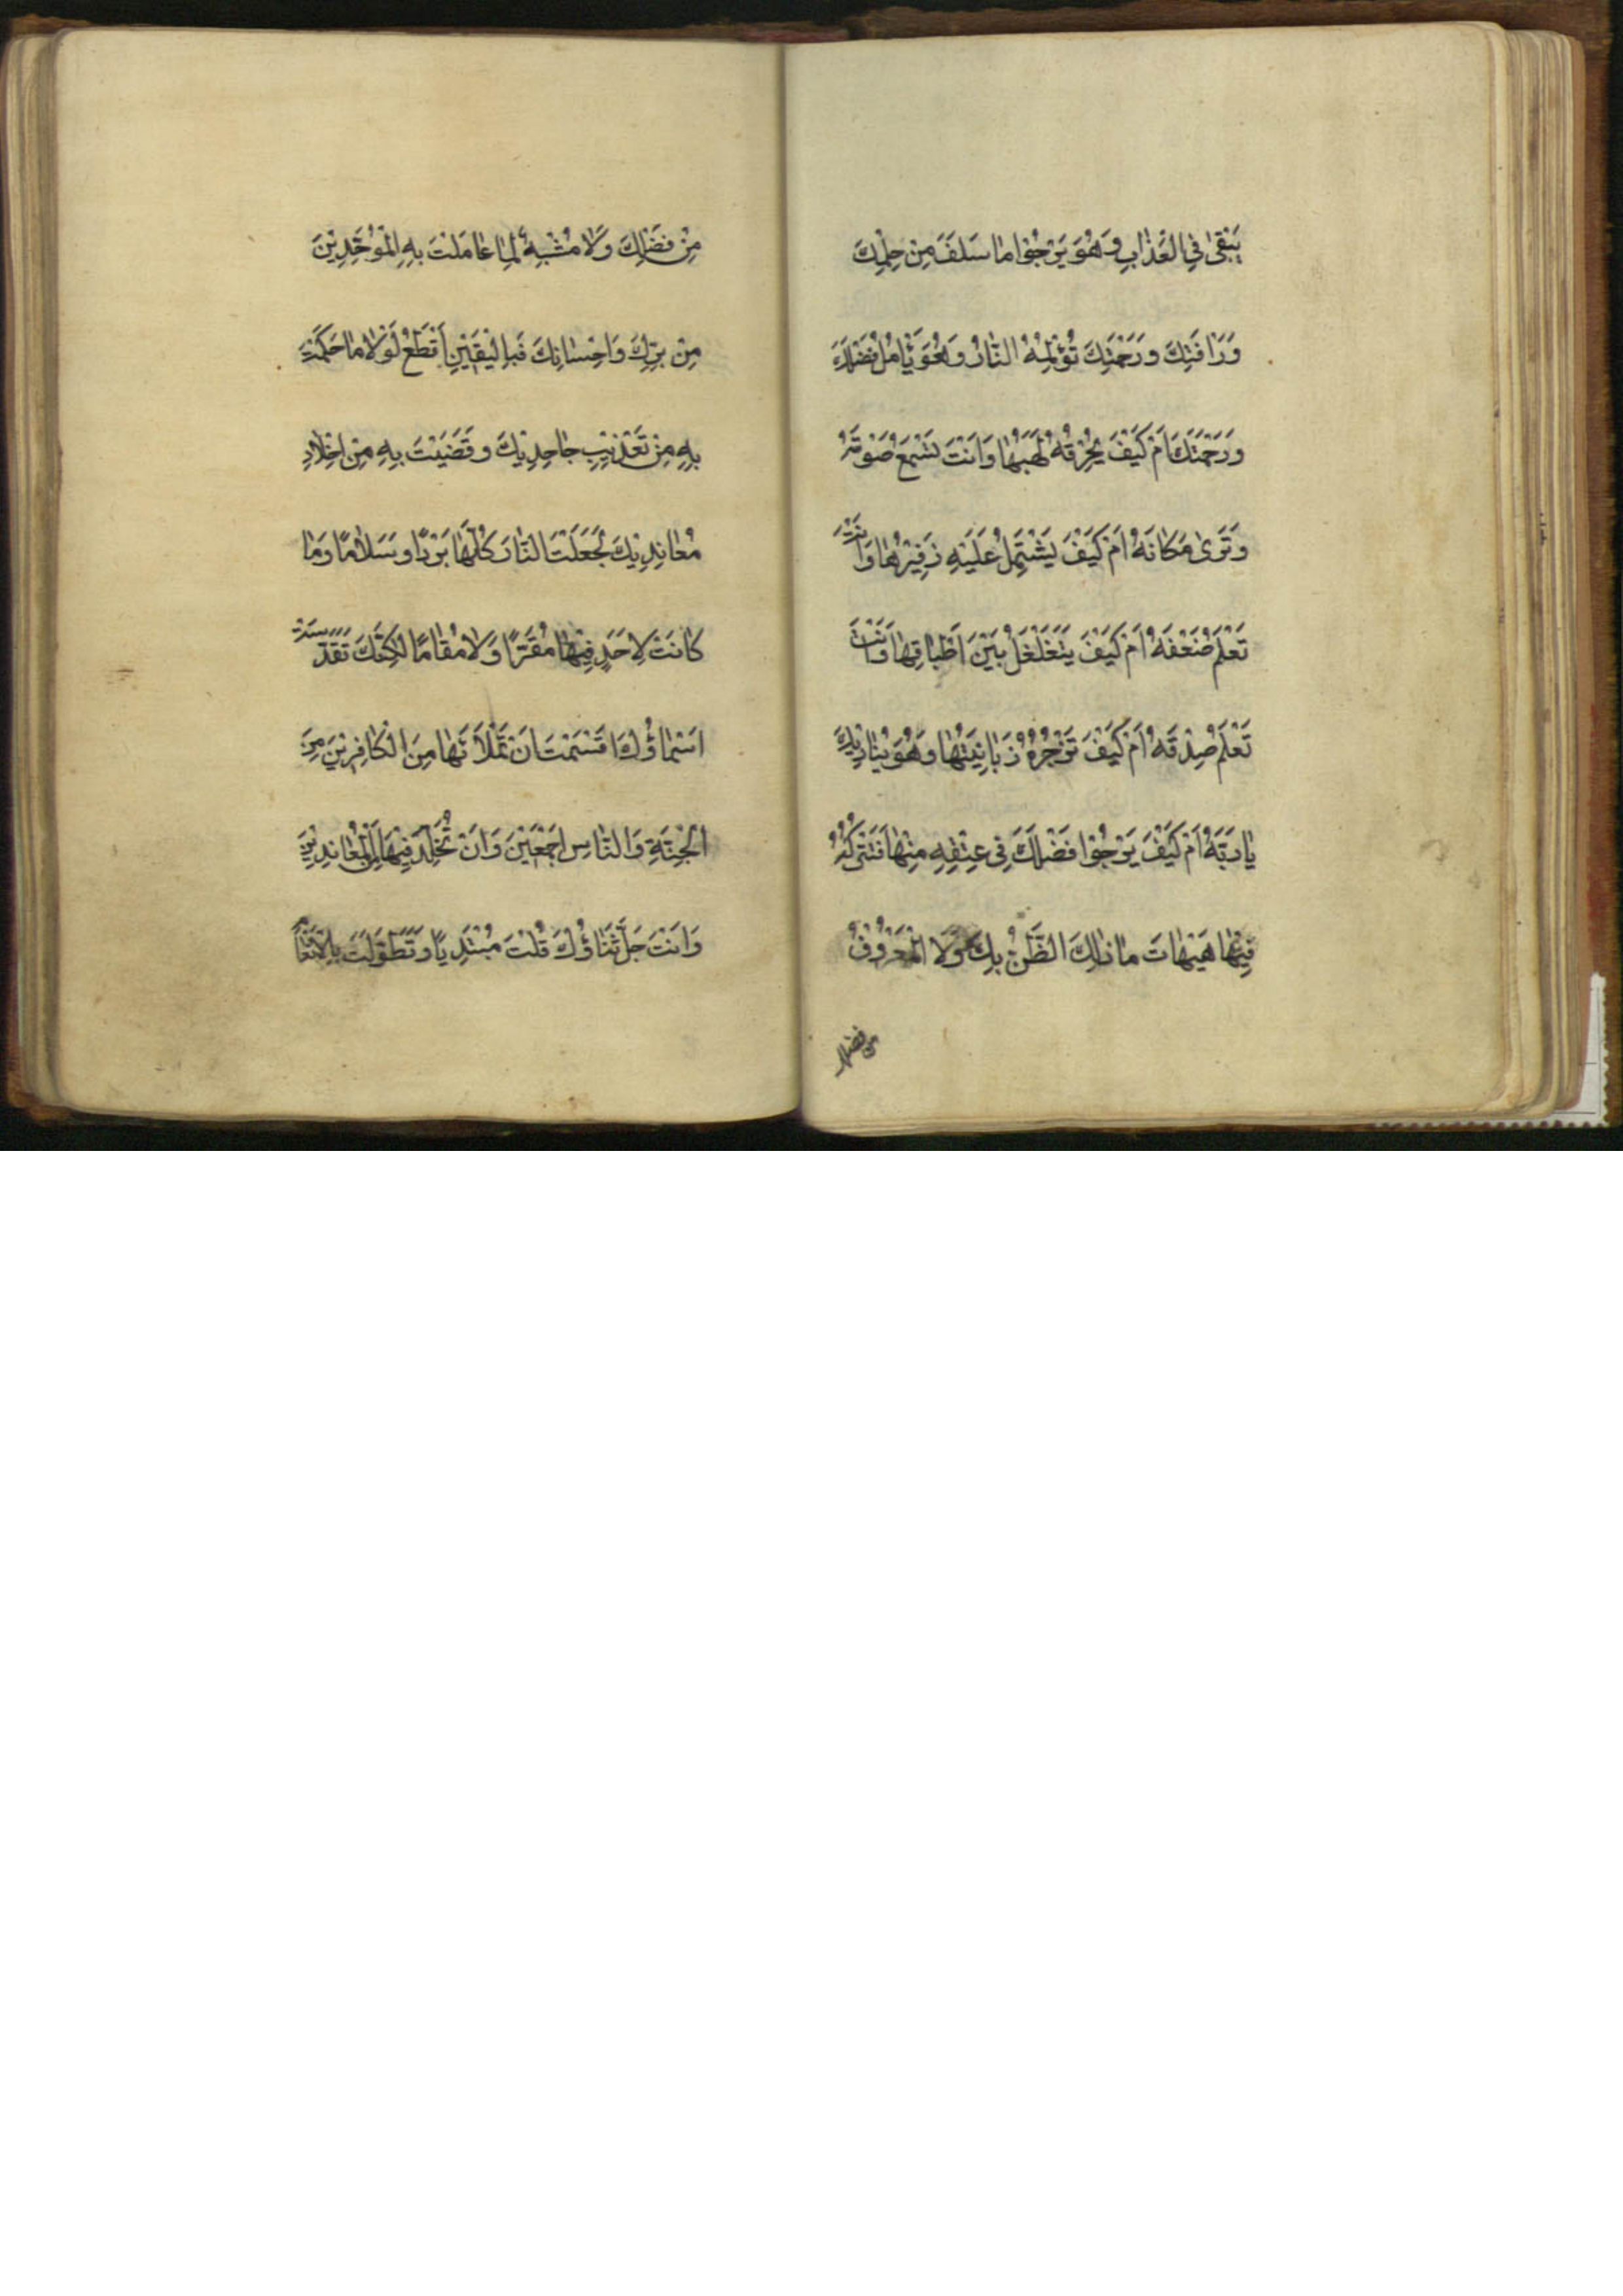 يَبْقىٰ فِي الْعَذٰابِ وَهُوَ يَرْجُوا مٰا سَلَفَ مِنْ حِلْمِكَ
وَرَافَتِكَ وَرَحْمَتِكَ تُؤْلِمُهُ النّٰارُ وَهُوَ يٰامُلُ فَضْلَكَ
وَرَحْمَتَكَ اَمْ كَيْفَ يُحْرِقُهُ لَهَبُهٰا وَاَنْتَ تَسْمَعُ صَوْتَهُ
وَتَرىٰ مَكانَهُ اَمْ كَيْفَ يَشْتَمِلُ عَلَيْهِ زَفِيْرُهٰا وَاَنْتَ
تَعْلَمُ ضَعْفَهُ اَمْ كَيْفَ يَتَغَلْغَلُ بَيْنَ اَطْباقِهٰا وَاَنْتَ
تَعْلَمُ صِدْقَهُ اَمْ كَيْفَ تَزْجُرُهُ زَبٰانِيَتُهٰا وَهُوَ يُنٰادِيْكَ
يٰا رَبَّهُ اَمْ كَيْفَ يَرْجُوْا فَضْلَكَ فِى عِتْقِهِ مِنْهٰا فَتَتْرُكُهُ
فِيْهٰا هَيْهٰاتَ مٰا ذٰلِكَ الظَّنُّ بِكَ وَلَا الْمَعْرُوْفُ
من فضلك
مِنْ فَضْلِكَ وَلٰا مُشْبِهٌ لِمٰا عٰامَلْتَ بِهِ الْمُوَحِّدِيْنَ
مِنْ بِرِّكَ وَاِحْسٰانِكَ فَبِالْيَقِيْنِ اَقْطَعُ لَوْلٰا مٰا حَكَمْتَ
بِهِ مِنْ تَعْذِيْبِ جٰاحِدِيْكَ وَقَضَيْتَ بِهِ مِنْ اِخْلٰادِ
مُعٰانِدِيْكَ لَجَعَلْتَ النّٰارَ كُلَّهٰا بَرْدًا وَسَلٰامًا وَمٰا
كٰانَتْ لِاَحَدٍ فِيْهٰا مُقَرًّا وَلٰا مُقٰامًا لٰكِنَّكَ تَقَدَّسَتْ
اَسْمٰاؤُكَ اَقْسَمْتَ اَنْ تَمْلَاَهٰا مِنَ الْكٰافِرِيْنَ مِنَ
الْجِنَّةِ وَالنّٰاسِ اَجْمَعِيْنَ وَاَنْ تُخَلِّدَ فِيْهَا الْمُعٰانِدِيْنَ
وَاَنْتَ جَلَّ ثَنٰاؤُكَ قُلْتَ مُبْتَدِيًا وَتَطَوَّلْتَ بِالْاِنْعٰامِ